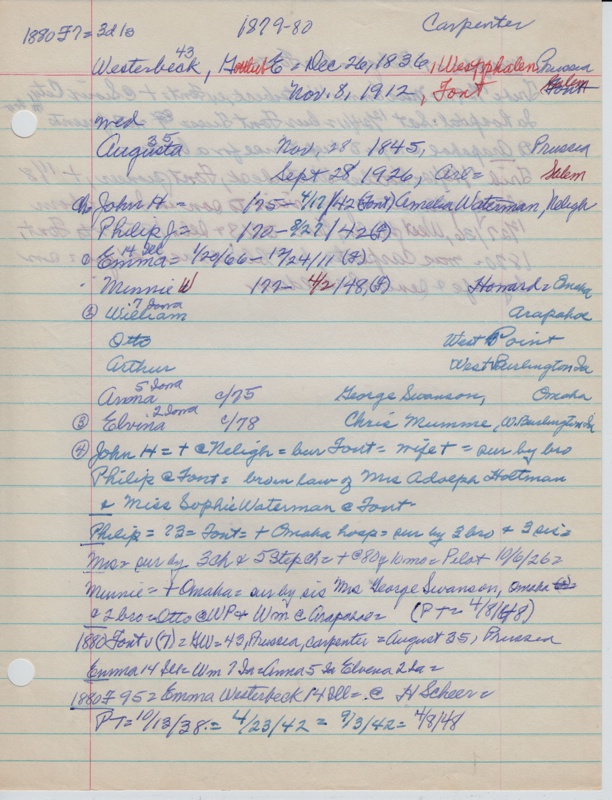 1880 F7 = 3d 10 1879-80 Carpenter
43
Westerbeck, E = Dec 26, 1836, Westphalen Prussia
Nov. 8, 1912, Font
Salem
wed
35
Augusta Nov. 28 1845, Prussia
Sept 28 1926, Salem
Ch John H = /75 - 4/12/42 (Font) Amelia Waterman, Neligh
Philip J = /70 - 8/27/42 (F)
14 Ill
Emma = 1/20/66 - 12/24/11 (F)
Minnie W /77 - 4/2/48, (F) Howard = Omaha
7 Iowa
② William Arapahoe
Otto West Point
Arthur West Burlington Ia
5 Iowa
Anna c/75 George Swanson, Omaha
2 Iowa
③ Elvina c/78 Chris Mumme, W. Burlington Ia
④ John H = + @ Neligh = bur Font = wife + = sur by bro
Philip @ Font = bro in law of Mrs Adolph Holtman
& Miss Sophie Waterman @ Font
Philip = 73 = Font = + Omaha hosp = sur by 3 bro & 3 sis =
Mrs = sur by 3 ch & 5 step ch = + @ 80 y 10 mo = Pilot 10/6/26 =
Minnie = + Omaha = sur by sis Mrs George Swanson, Omaha
& 2 bro = Otto @ WP & Wm @ Arapahoe = (PT = 4/8/48)
1880 Font v (7) = GW = 43, Prussia, carpenter = August 35, Prussia
Emma 14 Ill = Wm 7 Ia = Anna 5 Ia Elvena 2 Ia =
1880 F 95 = Emma Westerbeck 14 Ill = @ H Scheer =
PT = 10/13/38 = 4/23/42 = 9/3/42 = 4/8/48